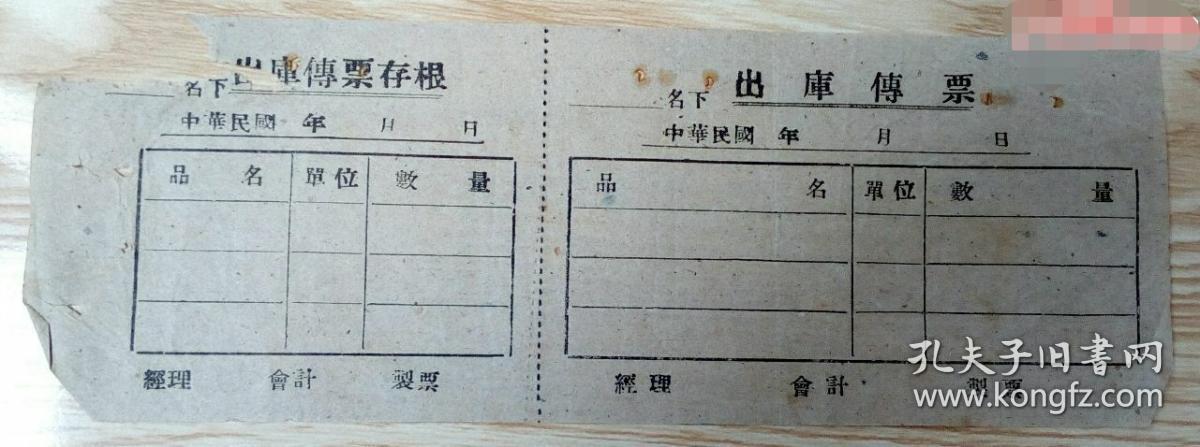 出庫傳票存根
名下
中華民國 年 月 日
品名 單位 數量
經理 會計 製票
出庫傳票
名下
中華民國 年 月 日
品名 單位 數量
經理 會計 製票
孔夫子旧书网
www.kongfz.com